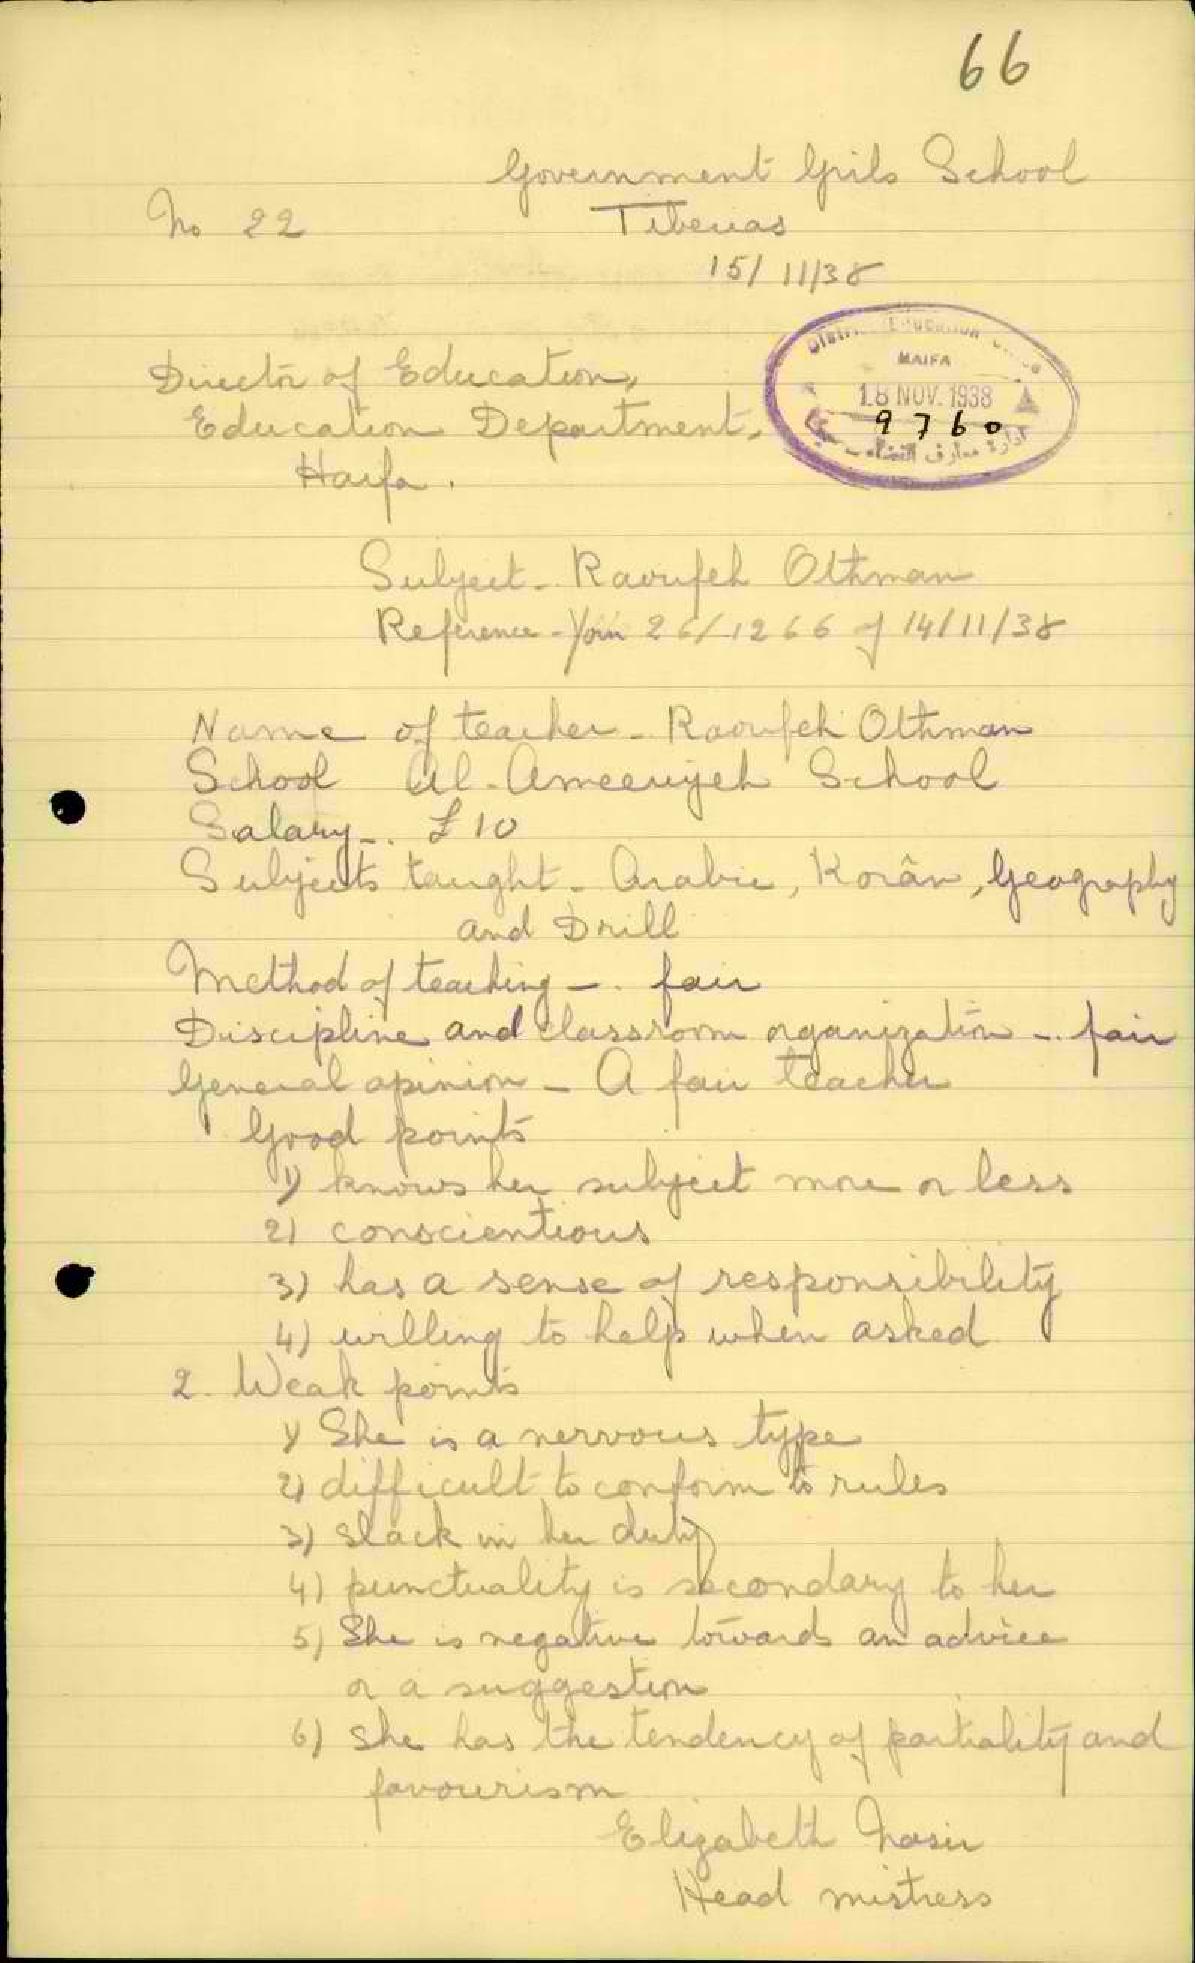 66
Government Grils School
No 22
Tiberias
15/11/38
District Education Office
HAIFA
18 NOV. 1938
9760
ادارة معارف
Director of Education,
Education Department,
Haifa.
Subject - Raoufeh Othman
Reference - Your 26/1266 of 14/11/38
Name of teacher - Raoufeh Othman
School Al-Ameeriyeh School
Salary - £10
Subjects taught - Arabic, Korân, Geography
and Drill
Method of teaching - fair
Discipline and classroom organization - fair
General opinion - A fair teacher
Good points
1) knows her subject more or less
2) conscientious
3) has a sense of responsibility
4) willing to help when asked
2. Weak points
1) She is a nervous type
2) difficult to conform to rules
3) slack in her duty
4) punctuality is secondary to her
5) She is negative towards an advice
or a suggestion
6) she has the tendency of partiality and
favourism
Elizabeth Nasir
Head mistress